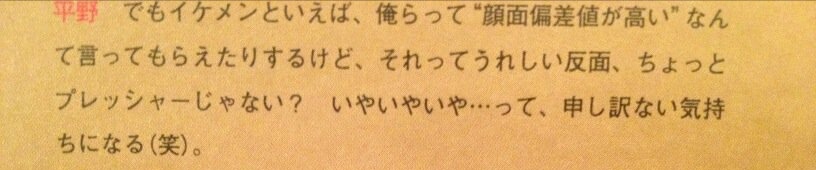 平野　でもイケメンといえば、俺らって“顔面偏差値が高い”なん
て言ってもらえたりするけど、それってうれしい反面、ちょっと
プレッシャーじゃない？　いやいやいや…って、申し訳ない気持
ちになる（笑）。